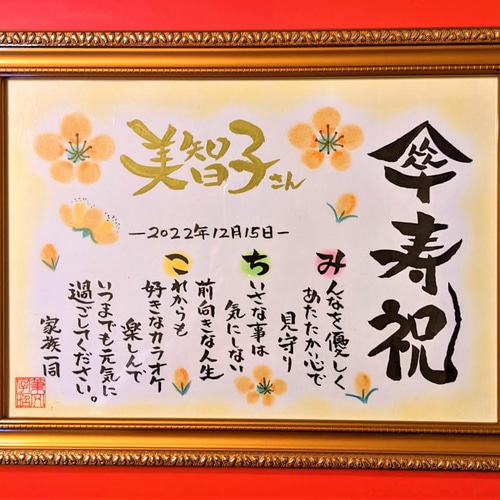 傘寿祝
美智子さん
―2022年12月15日―
みんなを優しく
あたたかい心で
見守り
ちいさな事は
気にしない
前向きな人生
これからも
好きなカラオケ
楽しんで
いつまでも元気に
過ごしてください。
家族一同